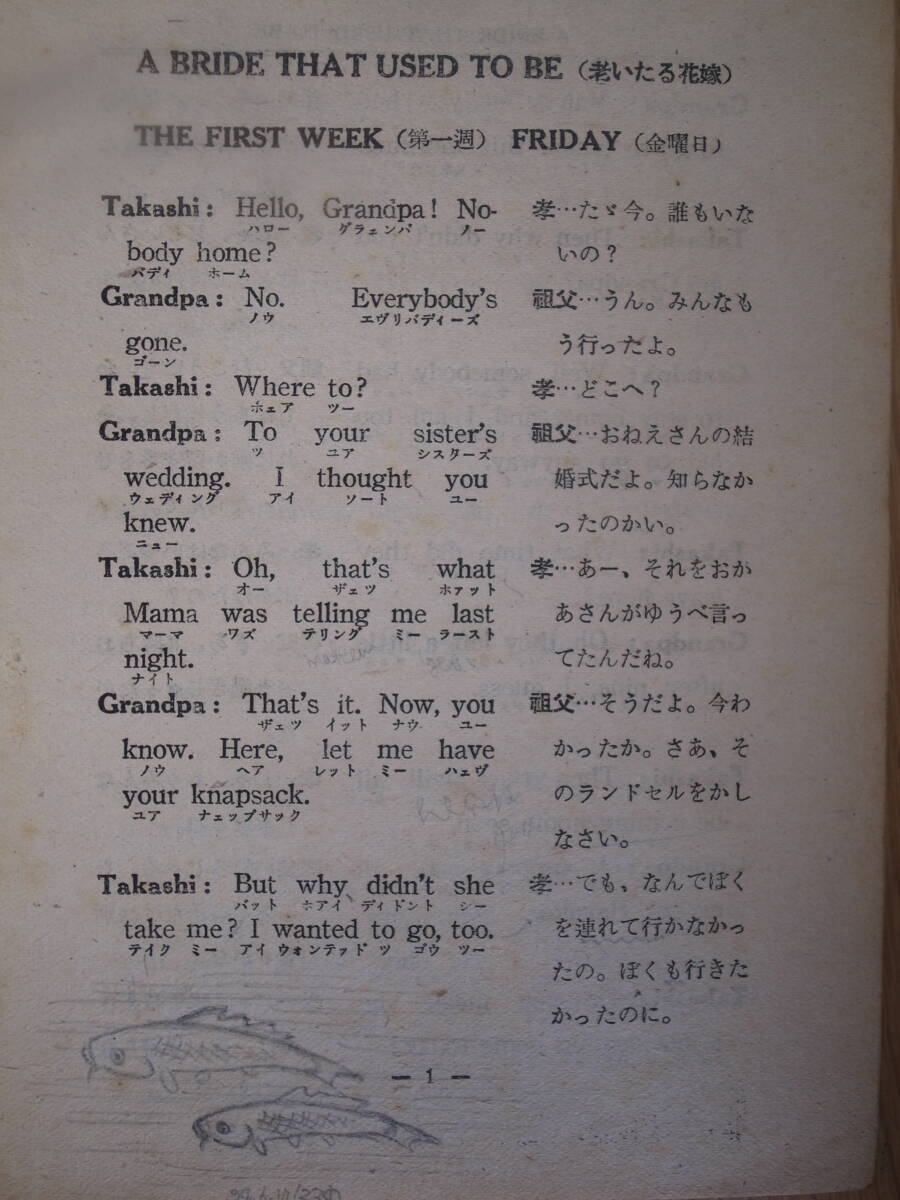 A BRIDE THAT USED TO BE（老いたる花嫁）
THE FIRST WEEK（第一週） FRIDAY（金曜日）
Takashi: Hello, Grandpa! No-
ハロー グラェンパ ノー
body home?
バディ ホーム
Grandpa: No. Everybody's
ノウ エヴリバディーズ
gone.
ゴーン
Takashi: Where to?
ホェア ツー
Grandpa: To your sister's
ツ ユア シスターズ
wedding. I thought you
ウェディング アイ ソート ユー
knew.
ニュー
Takashi: Oh, that's what
オー ザェツ ホァット
Mama was telling me last
マーマ ワズ テリング ミー ラースト
night.
ナイト
Grandpa: That's it. Now, you
ザェツ イット ナウ ユー
know. Here, let me have
ノウ ヘア レット ミー ハェヴ
your knapsack.
ユア ナェップサック
Takashi: But why didn't she
バット ホアイ ディドント シー
take me? I wanted to go, too.
テイク ミー アイ ウォンテッド ツ ゴウ ツー
孝…たゞ今。誰もいな
いの？
祖父…うん。みんなも
う行ったよ。
孝…どこへ？
祖父…おねえさんの結
婚式だよ。知らなか
ったのかい。
孝…あー、それをおか
あさんがゆうべ言っ
てたんだね。
祖父…そうだよ。今わ
かったか。さあ、そ
のランドセルをかし
なさい。
孝…でも、なんでぼく
を連れて行かなかっ
たの。ぼくも行きた
かったのに。
— 1 —